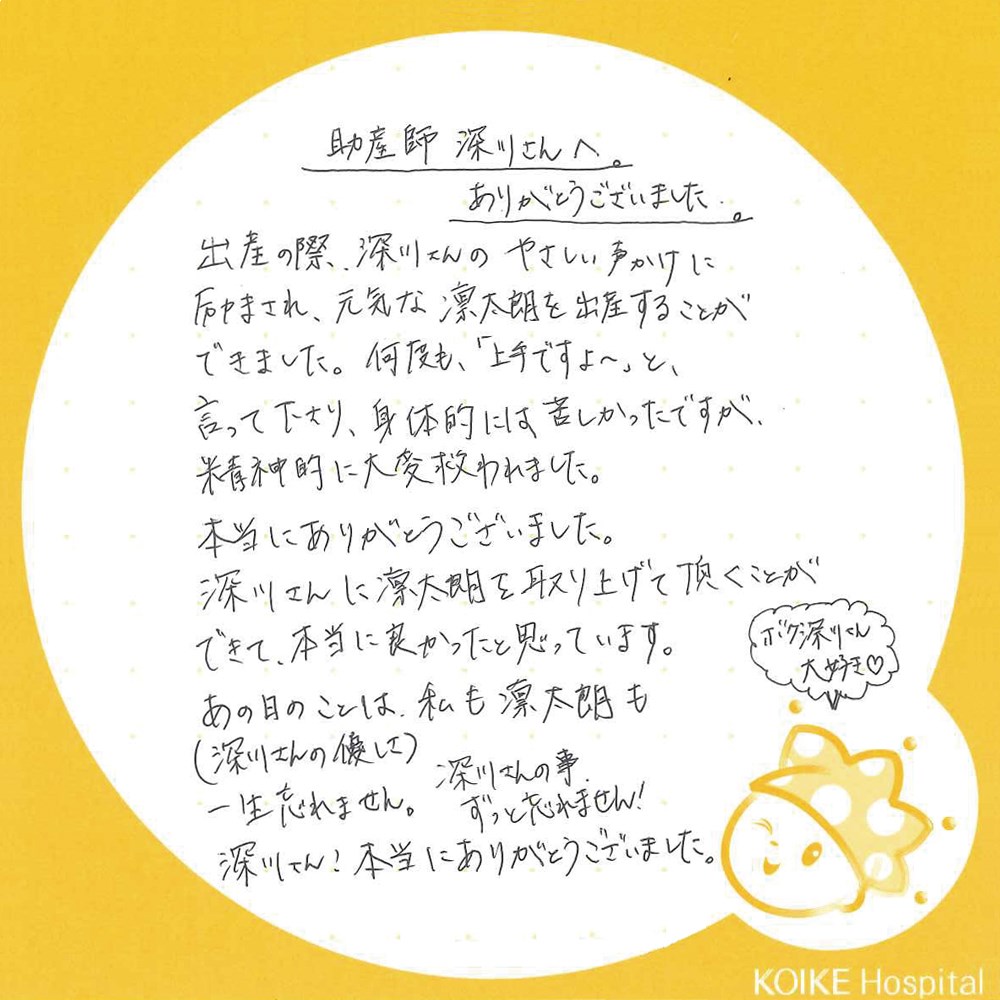 助産師 深川さんへ。
ありがとうございました。
出産の際、深川さんの やさしい声かけに
励まされ、元気な 凛太朗を出産することが
できました。何度も、「上手ですよ〜」と、
言って下さり、身体的には苦しかったですが、
精神的に大変救われました。
本当にありがとうございました。
深川さんに凛太朗を取り上げて頂くことが
できて、本当に良かったと思っています。
ボク深川さん
大好き♡
あの日のことは、私も 凛太朗も
(深川さんの優しさ)
一生忘れません。
深川さんの事、
ずっと忘れません!
深川さん!本当にありがとうございました。
KOIKE Hospital